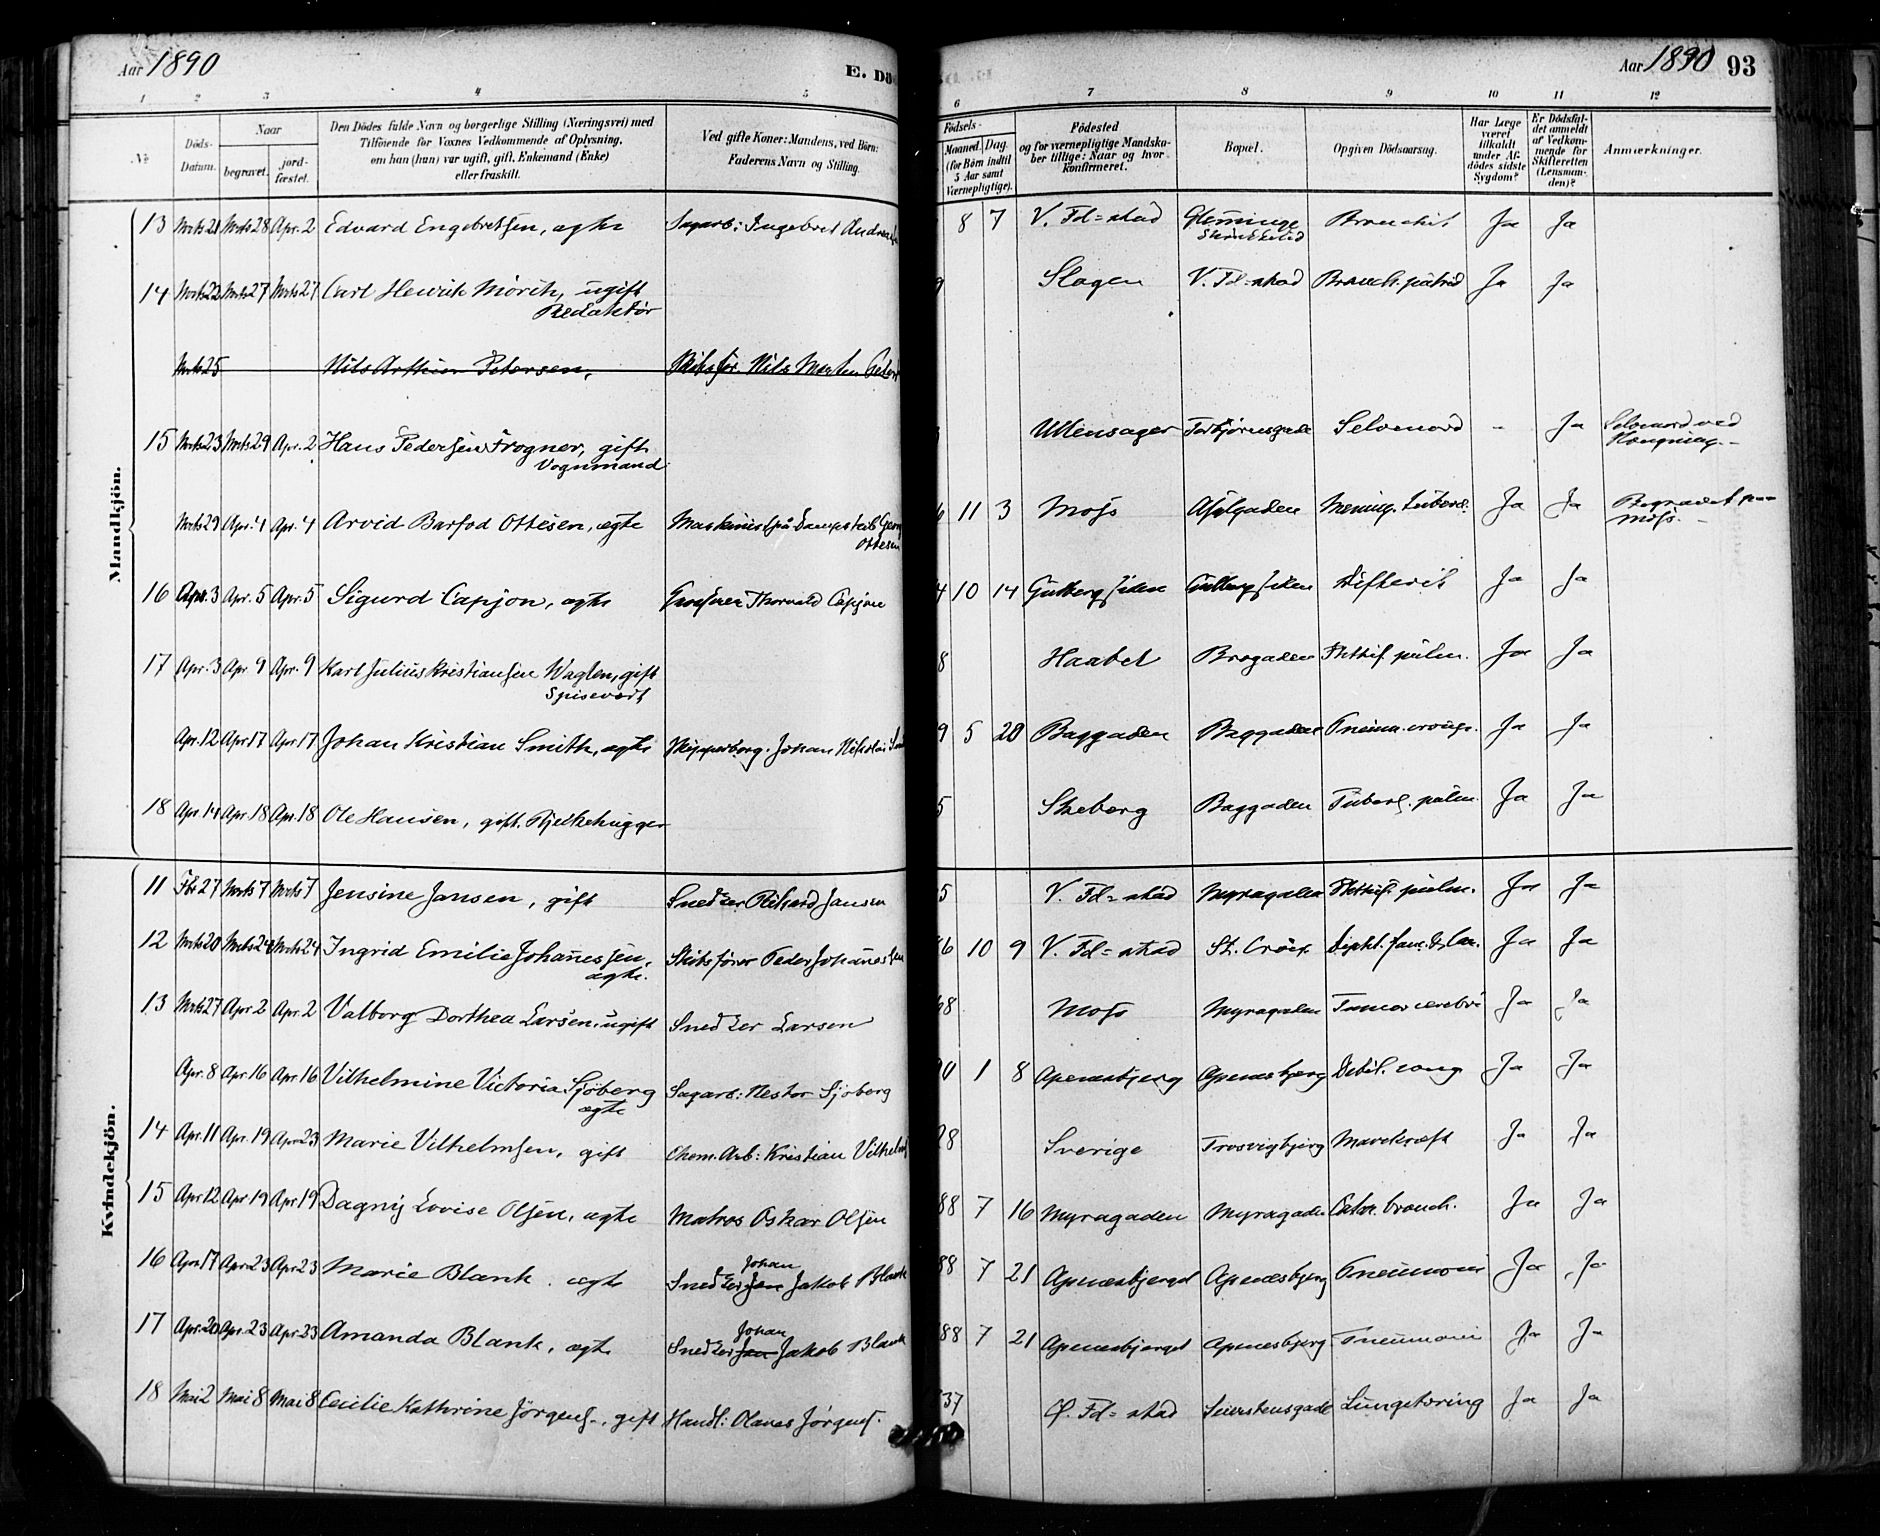 Aar 1890
E. Dö
Aar 1890 93
1 2 3 4 5 6 7 8 9 10 11 12
№
Döds-Datum.
Naar
begravet.
jord-fæstet.
Den Dödes fulde Navn og borgerlige Stilling (Næringsvei) med
Tilföiende for Voxnes Vedkommende af Oplysning,
om han (hun) var ugift, gift, Enkemand (Enke)
eller fraskilt.
Ved gifte Koner: Mandens, ved Börn:
Faderens Navn og Stilling.
Födsels-
Maaned. Dag.
(for Börn indtil
5 Aar samt
Værnepligtige).
Födested
og for værnepligtige Mandska-
ber tillige: Naar og hvor
konfirmeret.
Bopæl.
Opgiven Dödsaarsag.
Har Læge
været
tilkaldt
under Af-
dödes sidste
Sygdom?
Er Dödsfal-
det anmeldt
af Vedkom-
mende for
Skifteretten
(Lensman-
den)?
Anmærkninger.
Mandkjön.
13 Mrts 21 Mrts 28 Apr. 2 Edvard Engebretsen, ægte Sagarb: Ingebret 8 7 V. Fd=stad Glemminge Bronchit Ja Ja
14 Mrts 22 Mrts 27 Mrts 27 Carl Henrik Mörch, ugift Slagen V. Fd=stad Bronch. Ja Ja
Redaktör
Mrts 25 Nils Arthur Petersen, Skibsför. Nils Morten
15 Mrts 23 Mrts 29 Apr. 2 Hans Pedersen Frogner, gift Ullensager Selvmord - Ja Selvmord ved
Vognmand Hængning. -
Mrts 29 Apr. 4 Apr. 4 Arvid Barfod Ottesen, ægte Maskinist på Dampskib Georg 11 3 Moss Mening. tuberc. Ja Ja Begravet paa
Ottesen Moss. -
16 Apr. 3 Apr. 5 Apr. 5 Sigurd Capjon, ægte Thorvald Capjon 4 10 14 Gudbergsiden Gudbergsiden Difterit Ja Ja
17 Apr. 3 Apr. 9 Apr. 9 Karl Julius Kristiansen Waglen, gift 8 Haabet Brogaden Phthis. pulm. Ja Ja
Spisevert
Apr. 12 Apr 17 Apr. 17 Johan Kristian Smith, ægte Skipperborg. Johan Nikolai 9 5 28 Baggaden Baggaden Pneum. croup. Ja Ja
18 Apr. 14 Apr. 18 Apr. 18 Ole Hansen, gift. Bjelkehugger 5 Skeberg Baggaden Tuberc. pulm. Ja Ja
Kvindekjön.
11 Fbr 27 Mrts 7 Mrts 7 Jensine Jansen, gift Snedker Rikard Jansen 5 V. Fd=stad Myragaden Phthis. pulm. Ja Ja
12 Mrts 20 Mrts 24 Mrts 24 Ingrid Emilie Johannessen, Skibsförer Peder Johannessen 6 10 9 V. Fd=stad St. Croix Ja Ja
ægte.
13 Mrts 27 Apr. 2 Apr. 2 Valborg Dorthea Larsen, ugift Snedker Larsen 68 Moss Myragaden Tumor cerebri Ja Ja
Apr. 8 Apr 16 Apr. 16 Vilhelmine Victoria Sjöberg Sagarb: Nestor Sjöberg 0 1 8 Apenesbjerg Apenesbjerg Debil. cong Ja Ja
ægte
14 Apr. 11 Apr. 19 Apr 23 Marie Vilhelmsen, gift Chem. Arb: Kristian Vilhelms 28 Sverige Trosvigbjerg Mavekræft Ja Ja
15 Apr 12 Apr 19 Apr. 19 Dagny Lovise Olsen, ægte Matros Oskar Olsen 88 7 16 Myragaden Myragaden Catar. bronch. Ja Ja
16 Apr 17 Apr 23 Apr 23 Marie Blank, ægte Snedker Jan Johan Jakob Blank 88 7 21 Apenesbjerget Apenesbjerg Pneumoni Ja Ja
17 Apr. 20 Apr. 23 Apr 23 Amanda Blank, ægte Snedker Jan Johan Jakob Blank 88 7 21 Apenesbjerget Apenesbjerg Pneumoni Ja Ja
18 Mai 2 Mai 8 Mai 8 Cecilie Kathrine Jörgens., gift Handl: Olaves Jörgens. 37 Ø. Fd=stad Lungetæring Ja Ja